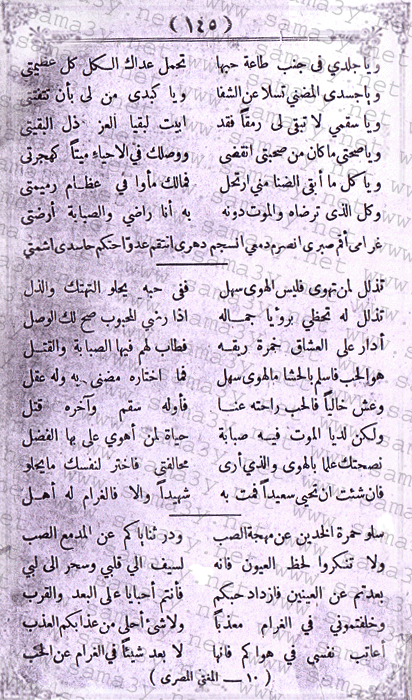 ( ١٤٥ )
ويا جلدي فى جنب طاعة حبها تحمل عداك الكل كل عظيمتي
ويا جسدى المضني تسلا عن الشفا ويا كبدى من لى بأن تتفتتي
ويا سقمي لا تبقى لى رمقاً فقد ابيت لبقيا العز ذل البقيتي
ويا صحتي ما كان من صحبتي انقضى ووصلك في الاحياء ميتاً كهجرتي
ويا كل ما أبقى الضنا مني ارتحل فمالك مأوا في عظام رميمتي
وكل الذى ترضاه والموت دونه به أنا راضي والصبابة أوضتي
غرامى أقم صبرى انصرم دمعي انسجم دهرى انتقم عدوّ احتكم حاسدى اشمتي
تذلل لمن تهوى فليس الهوى سهل ففى حبه يحلو التهتك والذل
تذلل له تحظي برؤيا جماله اذا رضي المحبوب صح لك الوصل
أدار على العشاق خمرة ريقه فطاب لهم فيها الصبابة والقتل
هو الحب فاسلم بالحشا ما الهوى سهل فما اختاره مضنى به وله عقل
وعش خالياً فالحب راحته عنا فأوله سقم وآخره قتل
ولكن لديا الموت فيه صبابة حياة لمن أهوي على بها الفضل
نصحتك علما بالهوى والذي أرى مخالفتي فاختر لنفسك ما يحلو
فان شئت ان تحيى سعيداً فمت به شهيداً والا فالغرام له أهل
سلو حمرة الخدين عن مهجة الصب ودر ثناياكم عن المدمع الصب
ولا تنكروا لحظ العيون فانه لسيف الي قلبي وسحر الى لبي
بعدتم عن العينين فازداد حبكم فأنتم أحبابا على البعد والقرب
وخلفتموني في الغرام معذباً ولا شئ أحلى من عذابكم العذب
أعاتب نفسي في هواكم فانها لا بعد شيئاً في الغرام عن العتب
( ١٠ — المغني المصرى )
www.sama3y.net